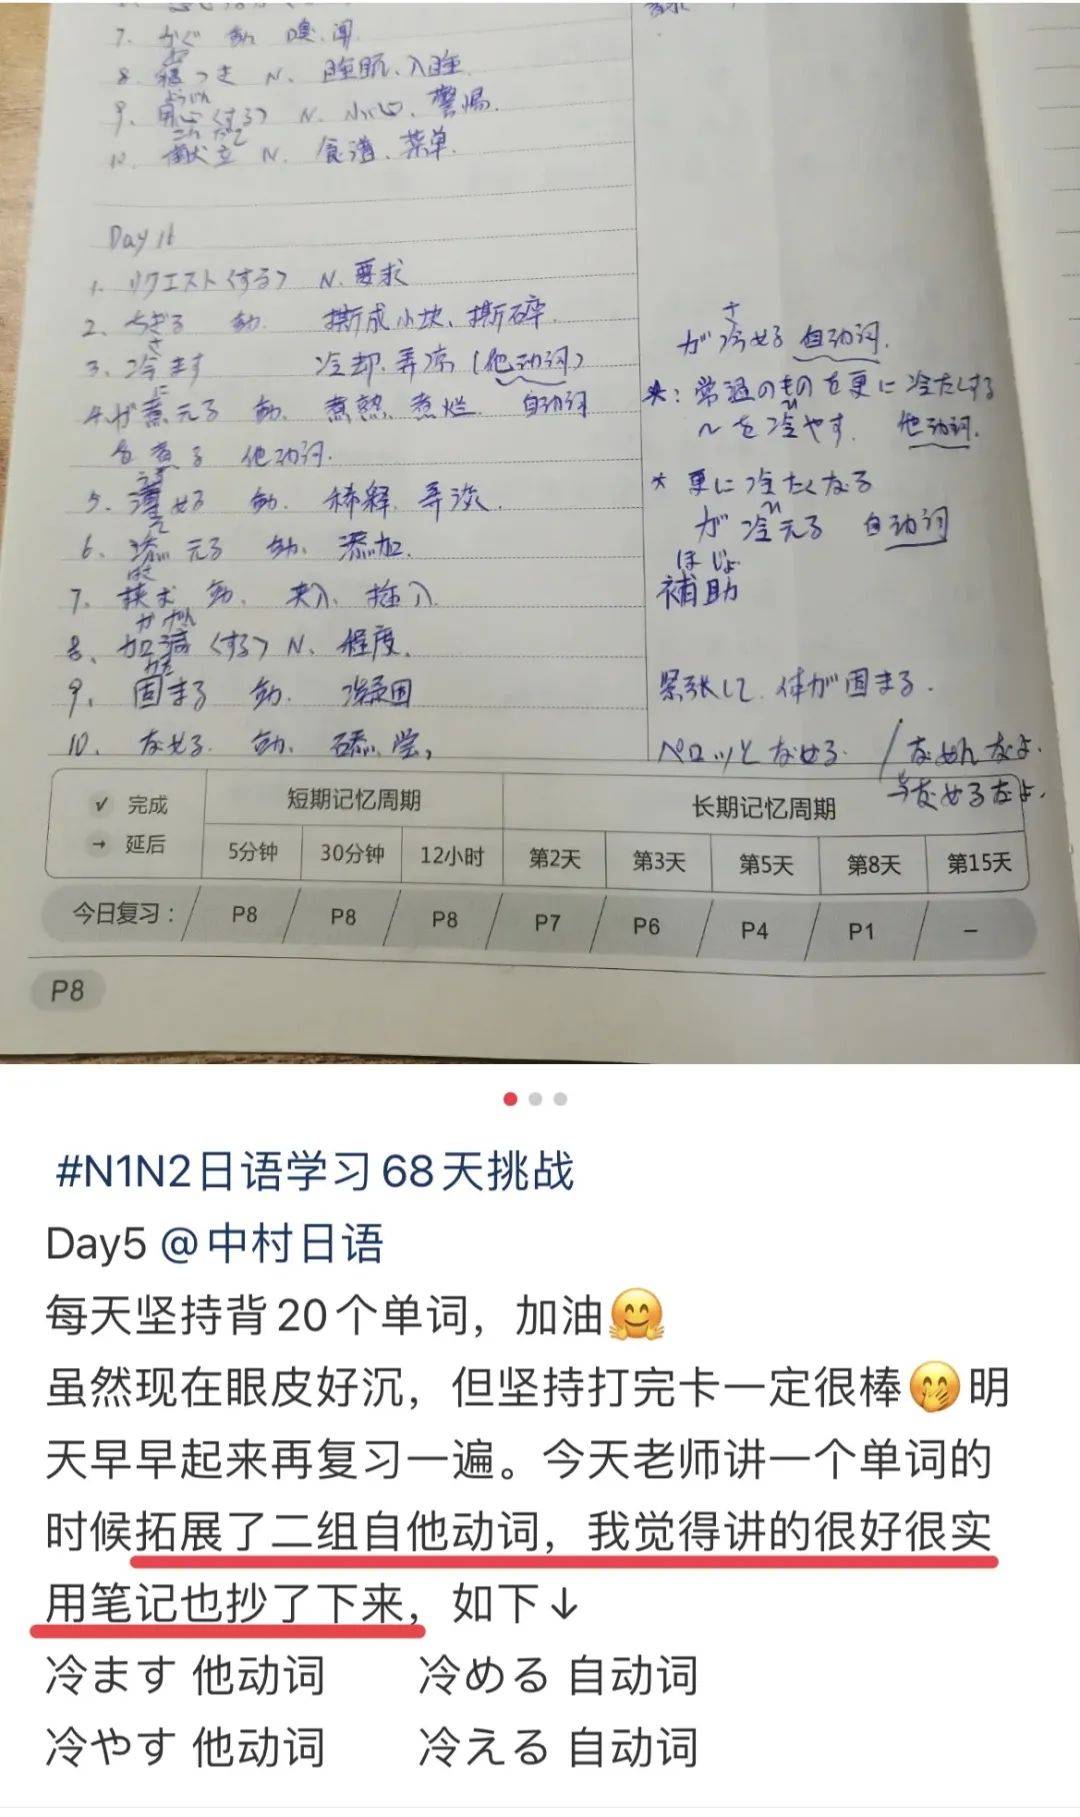 7. かぐ 動 嗅.闻
8. 寝つき N. 睡眠、入睡
9. 用心<する> N. 小心、警惕.
ようじん
10. 献立 N. 食谱、菜单.
こんだて
Day 16
1. リクエスト<する> N.要求
2. ちぎる 動. 撕成小块、撕碎.
3. 冷ます 冷却.弄凉(他动词)
さ
が冷める 自动词.
さ
4. が煮える 動. 煮熟、煮烂. 自动词
に
を煮る 他动词.
*:常温のものを更に冷たくする
~を冷やす. 他动词.
ひ
5. 薄める 動. 稀释.弄淡.
うす
* 更に冷たくなる
が冷える 自动词
ひ
6. 添える 動. 添加.
そ
7. 挟む 動. 夹入、插入
はさ
ほじょ
補助
8. 加減<する> N. 程度.
かげん
9. 固まる 動. 凝固
かた
緊張して.体が固まる.
10. なめる. 動. 舔.尝,
ペロッとなめる. / なめんなよ.
なめるなよ.
√ 完成
→ 延后
短期记忆周期
长期记忆周期
5分钟 30分钟 12小时 第2天 第3天 第5天 第8天 第15天
今日复习: P8 P8 P8 P7 P6 P4 P1 –
P8
#N1N2日语学习68天挑战
Day5 @中村日语
每天坚持背20个单词，加油🤗
虽然现在眼皮好沉，但坚持打完卡一定很棒🤭明
天早早起来再复习一遍。今天老师讲一个单词的
时候拓展了二组自他动词，我觉得讲的很好很实
用笔记也抄了下来，如下↓
冷ます 他动词 冷める 自动词
冷やす 他动词 冷える 自动词